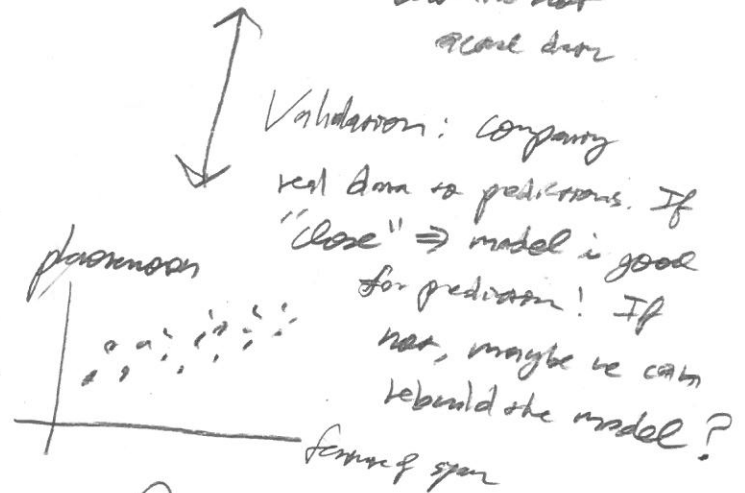 Validation: comparing
real data to predictions. If
"close" ⇒ model is good
for prediction! If
not, maybe we can
rebuild the model?
phenomenon
feature of system